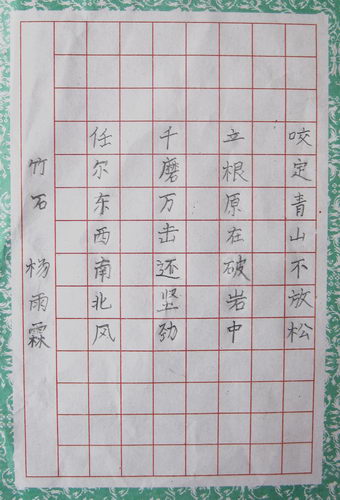 咬定青山不放松
立根原在破岩中
千磨万击还坚劲
任尔东西南北风
竹石 杨雨霖